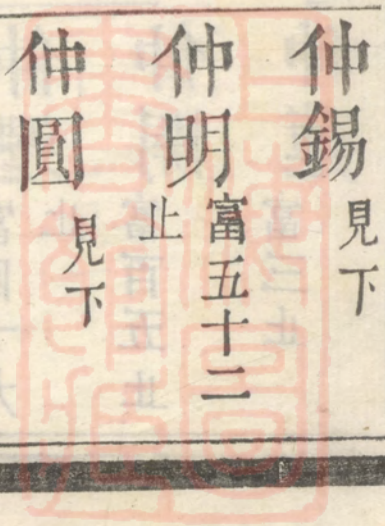 仲錫 見下
仲明 富五十二
止
仲圓 見下